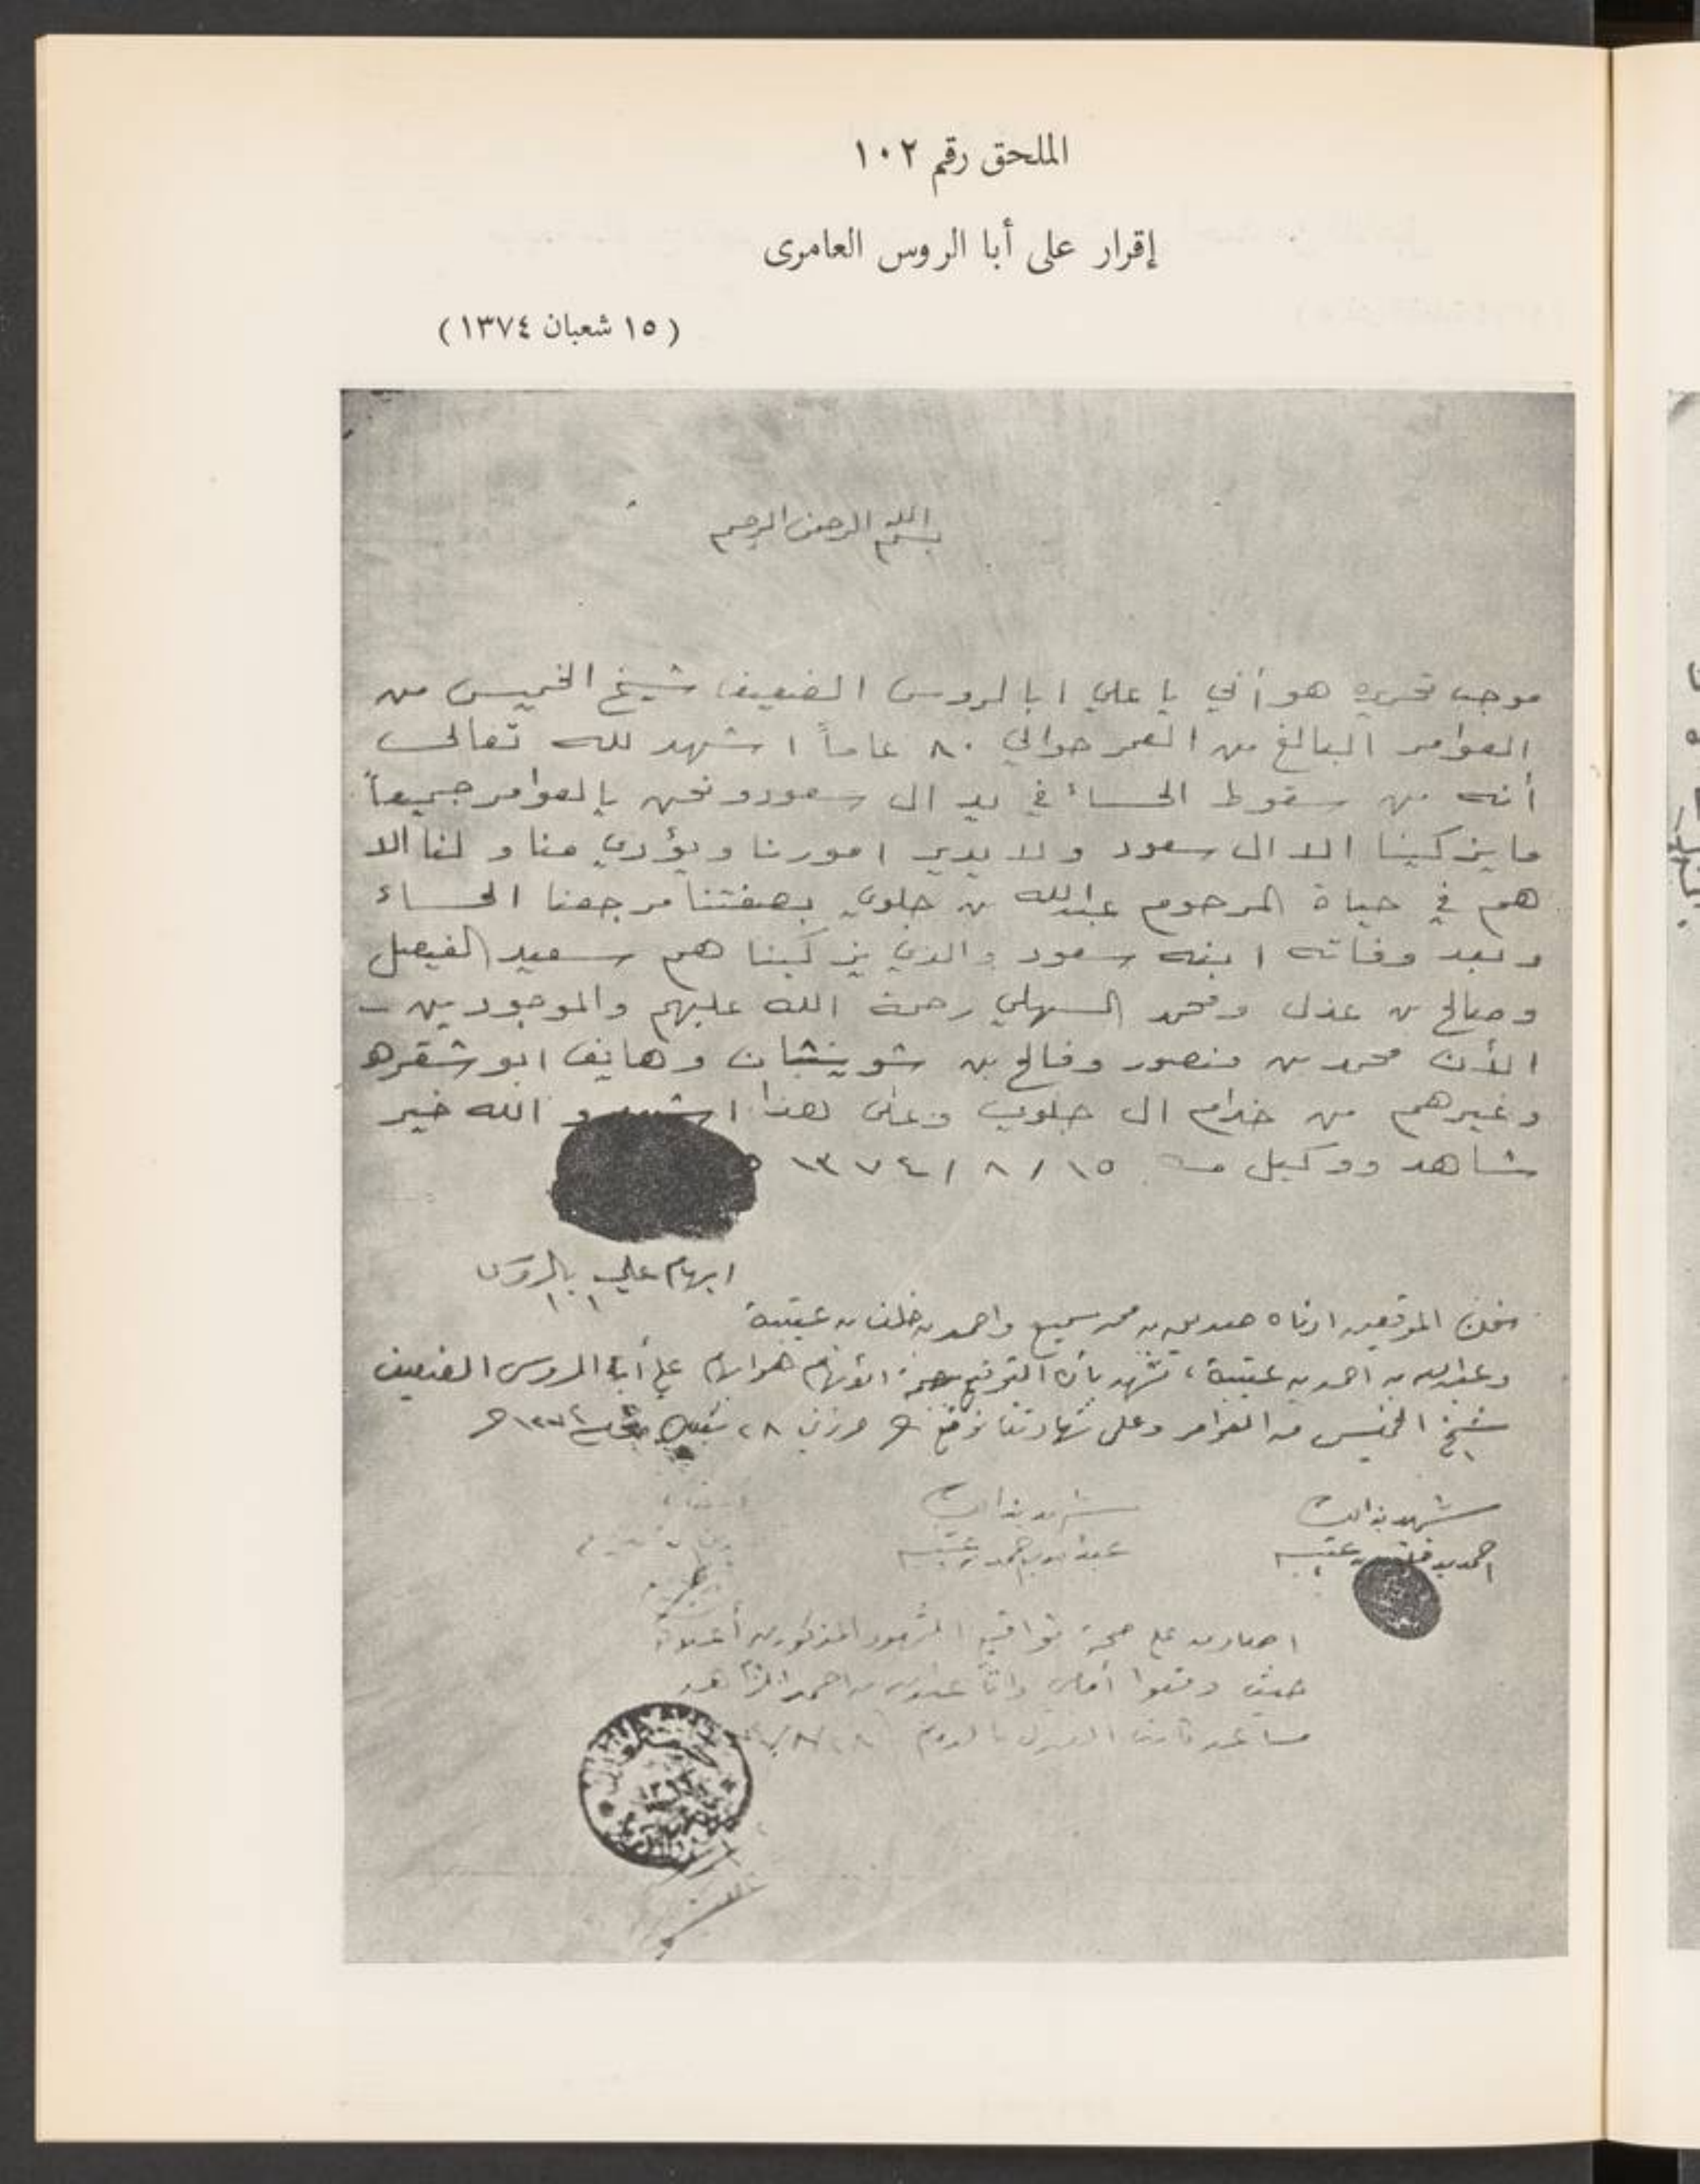 الملحق رقم ١٠٢
إقرار على أبا الروس العامرى
(١٥ شعبان ١٣٧٤)
بسم الله الرحمن الرحيم
موجب تحريره هو أني يا علي ابا لروس الضعيف شيخ الخميس من
العوامر البالغ من العمر حوالي ٨٠ عاماً اشهد لله تعالى
أنه من سقوط الحساء في يد ال سعود ونحن يا لعوامر جميعاً
ما يزكينا الا ال سعود ولا يدير امورنا ويؤدي منا و لنا الا
هم في حياة المرحوم عبدالله بن جلوي بصفتنا مرجعنا الحساء
وبعد وفاته ابنه سعود والذي يزكينا هم سعيد الفيصل
وصالح بن عذل ومحمد السهلي رحمة الله عليهم والموجودين
الأن محمد بن منصور وفالح بن شوينشان وهايف ابو شقره
وغيرهم من خدام ال جلوي وعلى هذا اشهد و الله خير
شاهد ووكيل ١٥ / ٨ / ١٣٧٤
ابهام علي بالروس
نحن الموقعين ادناه بن محمد سميع واحمد بن خلف بن عتيبة
وعبدالله بن احمد بن عتيبة، نشهد بأن التوقيع هو ابهام علي أبا الروس الضعيف
شيخ الخميس من العوامر وعلى شهادتنا نوقع ٢٨
شهد بذالك
احمد بن خلف بن عتيبه
شهد بذالك
عبدالله بن احمد بن عتيبه
على صحة تواقيع الشهود المذكورين أعلاه
حيث وقعوا أمامي وانا بن احمد
مساعد